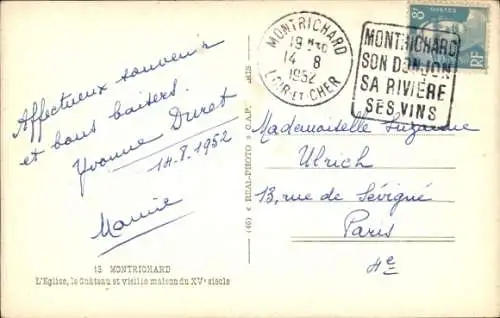 Affectueux souvenir
et bons baisers.
Yvonne Duret
14.8.1952
Mamie
13 MONTRICHARD
L'Eglise, le Château et vieille maison du XVe siècle
(46) « REAL-PHOTO » C.A.P. PARIS
MONTRICHARD
19H30
14 8
1952
LOIR-ET-CHER
MONTRICHARD
SON DONJON
SA RIVIERE
SES VINS
8F
RF
Mademoiselle Suzanne
Ulrich
13, rue de Sévigné
Paris
4e